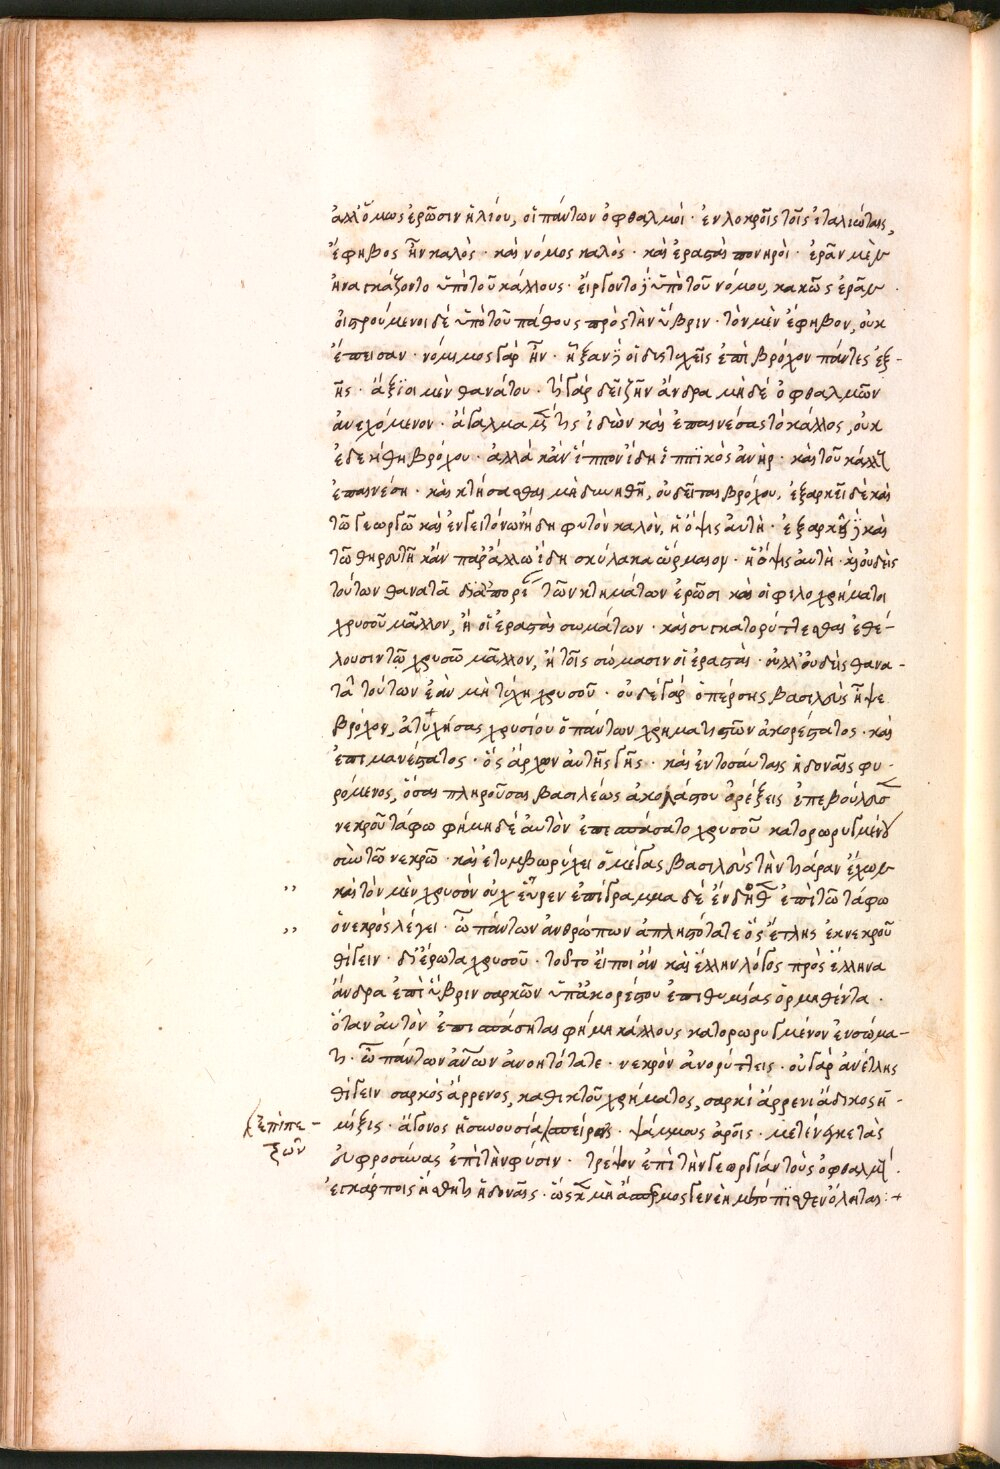 ἀλλ' ὅμως ἐρῶσιν ἡλίου, οἱ πάντων ὀφθαλμοὶ · ἐν λοκροῖς τοῖς ἰταλιώταις,
ἔφηβος ἦν καλὸς · καὶ νόμος καλὸς · καὶ ἐρασταὶ πονηροὶ · ἐρᾶν μὲν
ἠναγκάζοντο ὑπὸ τοῦ κάλλους · εἴργοντο δὲ ὑπὸ τοῦ νόμου, κακῶς ἐρᾶν ·
οἰστρούμενοι δὲ ὑπὸ τοῦ πάθους πρὸς τὴν ὕβριν · τὸν μὲν ἔφηβον, οὐκ
ἔπεισαν · νόμιμος γὰρ ἦν · ᾖξαν δὲ οἱ δυστυχεῖς ἐπὶ βρόχον πάντες ἑξ-
ῆς · ἄξιοι μὲν θανάτου · τί γὰρ δεῖ ζῆν ἄνδρα μηδὲ ὀφθαλμῶν
ἀνεχόμενον · ἄγαλμα μέν τις ἰδὼν καὶ ἐπαινέσας τὸ κάλλος, οὐκ
ἐδεήθη βρόχου · ἀλλὰ κἂν ἵππον ἴδη ἱππϊκὸς ἀνὴρ · καὶ τοῦ κάλλους
ἐπαινέση · καὶ κτήσασθαι μὴ δυνηθῆ, οὐ δεῖται βρόχου, ἐξαρκεῖ δὲ καὶ
τῶ γεωργῶ καὶ ἐν γειτόνων ἤδη φυτὸν καλὸν, ἡ ὄψις αὐτὴ · ἐξαρκεῖ δὲ καὶ
τῶ θηρευτῆ κἂν παρ' ἄλλω ἴδη σκύλακα ὥριμον · ἡ ὄψις αὐτὴ · καὶ οὐδεὶς
τούτων θανατᾶ τῶν κτημάτων ἐρῶσι καὶ οἱ φιλοχρήματοι
χρυσοῦ μᾶλλον, ἢ οἱ ἐρασταὶ σωμάτων · καὶ συγκατορύττεσθαι ἐθέ-
λουσιν τῶ χρυσῶ μᾶλλον, ἢ τοῖς σώμασιν οἱ ἐρασταὶ · ἀλλ' οὐδεὶς θανα-
τᾶ τούτων ἐὰν μὴ τύχη χρυσοῦ · οὐδὲ γὰρ ὁ πέρσης βασιλεὺς ἧψε
βρόχον, ἀτυχήσας χρυσίου ὁ πάντων χρηματιστῶν ἀκορέστατος · καὶ
ἐπιμανέστατος · ὃς ἄρχων αὐτῆς γῆς · καὶ ἐν τοσαύταις ἡδοναῖς φυ-
ρόμενος, ὅσας πληροῦσαι βασιλέως ἀκολάστου ὀρέξεις ἐπεβούλευσε
νεκροῦ τάφω φήμη δὲ αὐτὸν ἐπεσπάσατο χρυσοῦ κατορωρυγμένου
σὺν τῶ νεκρῶ · καὶ ἐτυμβωρύχει ὁ μέγας βασιλεὺς τὴν τιάραν ἔχων
καὶ τὸν μὲν χρυσὸν οὐχ εὗρεν ἐπίγραμμα δὲ ἔνδοθεν ἐπὶ τῶ τάφω
ὁ νεκρὸς λέγει · ὦ πάντων ἀνθρώπων ἀπληστότατε ὃς ἔτλης ἐκ νεκροῦ
θίγειν · δι' ἔρωτα χρυσοῦ · τοῦτο εἴποι ἂν καὶ ἕλλην λόγος πρὸς ἕλληνα
ἄνδρα ἐπὶ ὕβριν σαρκῶν ὑπ' ἀκορέστου ἐπιθυμίας ὁρμηθέντα ·
ὅταν αὐτὸν ἐπισπάσηται φήμη κάλλους κατορωρυγμένον ἐν σώμα-
τι · ὦ πάντων ἀνων ἀνοητότατε · νεκρὸν ἀνορύττεις · οὐ γὰρ ἂν ἔτλης
θίγειν σαρκὸς ἄρρενος, καθικτοῦ χρήματος, σαρκὶ ἄρρενι ἄδικος ἡ
μίξις · ἄγονος ἡ συνουσία σπείρεις · ψάμμους ἀροῖς · μετένεγκε τὰς
ἐπὶ πε-
τρῶν
εὐφροσύνας ἐπὶ τὴν φύσιν · τρέψον ἐπὶ τὴν γεωργίαν τοὺς ὀφθαλμοὺς ·
ἐγκάρποις ἥσθητι ἡδοναῖς · ὡς μὴ ἄσπερμος γενεὴ μετόπϊσθεν ὄληται :+